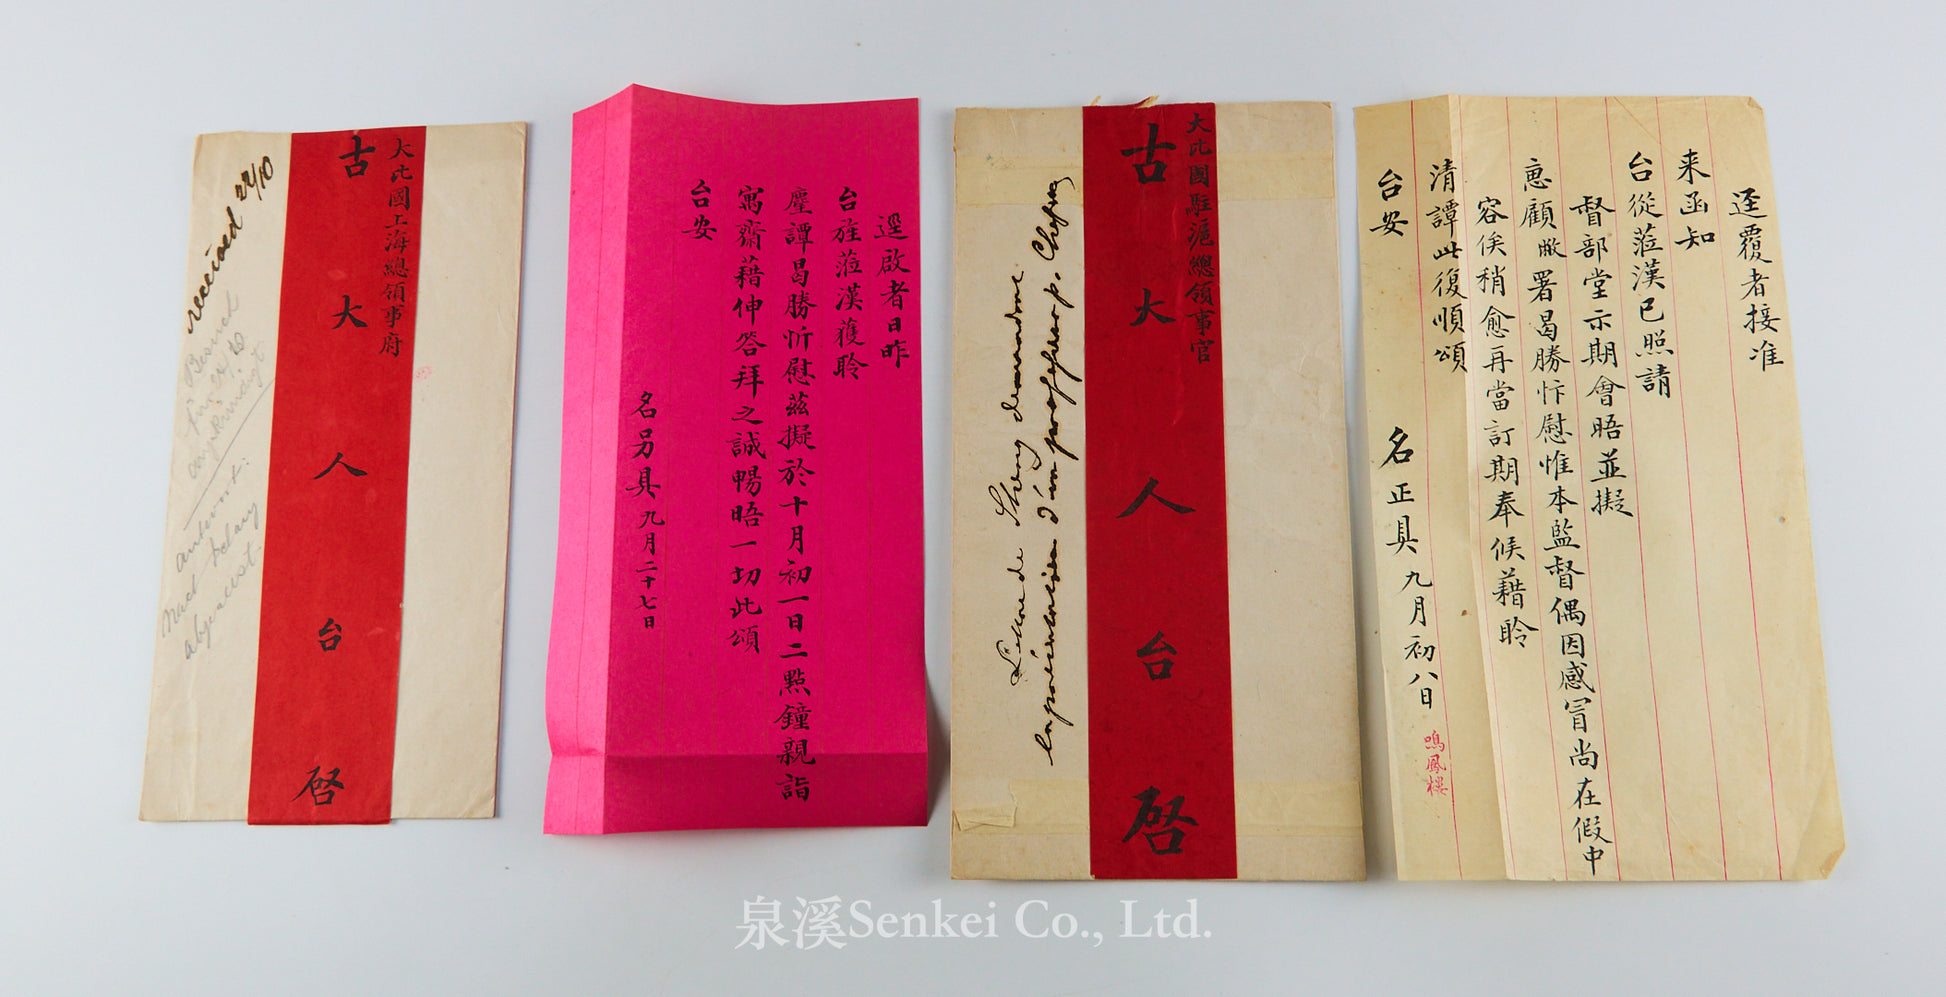 大比國上海總領事府
古大人台啓
received 22/10
Besuch
für 24/10
angekündigt
antwort:
abgereist
逕啟者日昨
台旌蒞漢獲聆
麈譚曷勝忻慰茲擬於十月初一日二點鐘親詣
寓齋藉伸答拜之誠暢晤一切此頌
台安
名另具 九月二十七日
大比國駐滬總領事官
古大人台啓
Lettre de Sheng
d'un professeur p.
逕覆者接准
来函知
台從蒞漢已照請
督部堂示期會晤並擬
惠顧敝署曷勝忭慰惟本監督偶因感冒尚在假中
容俟稍愈再當訂期奉候藉聆
清譚此復順頌
台安
名正具 九月初八日
鳴鳳樓
泉溪Senkei Co., Ltd.